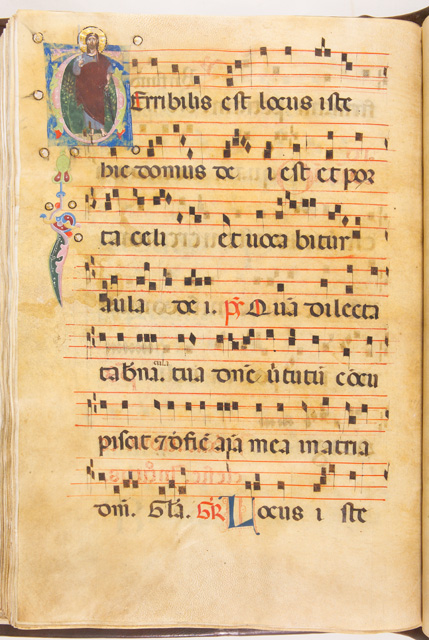 Erribilis est locus iste
hic domus de i est et por
ta celi et uoca bitur
aula de i. ps Quã dilecta
tab̃na. cula tua dñe ũtutũ cõcu
piscit ⁊ dẽficẽ aĩa mea in atria
dñi. Gl̃a. GR Locus i ste